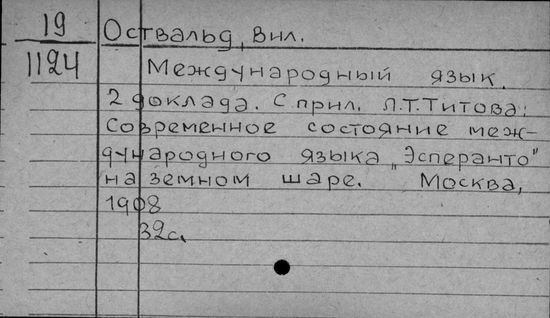 19
1124
Оствальд, Вил.
Международный язык.
2 доклада. С прил. Л.Т.Титова:
Современное состояние меж-
дународного языка „Эсперанто"
на земном шаре. Москва,
1908
32с.